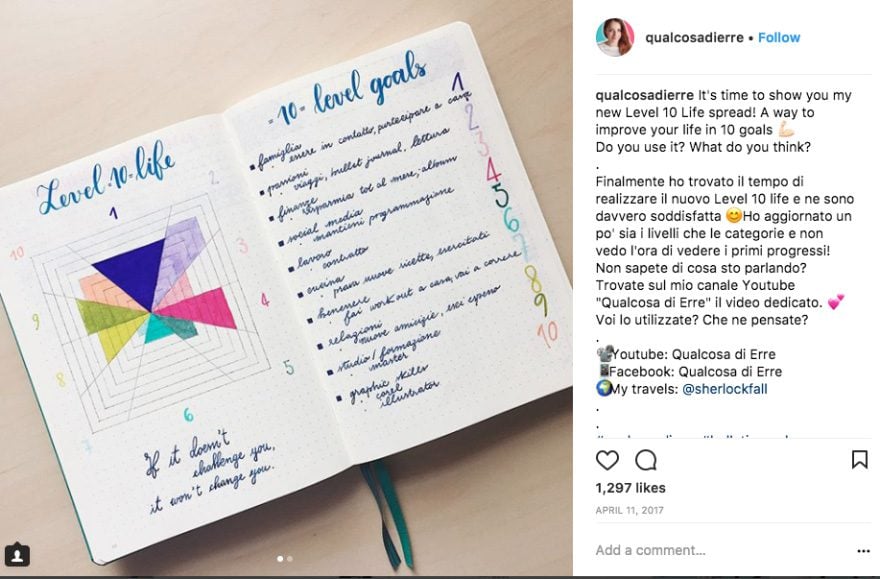 Level 10 life
1
2
3
4
5
6
7
8
9
10
If it doesn't
challenge you,
it won't change you.
10 level goals
famiglia 1
essere in contatto, partecipare a casa
passioni 2
viaggi, bullet journal, lettura
finanze 3
risparmia tot al mese, album
social media 4
mantieni programmazione
lavoro 5
contratto
cucina 6
prova nuove ricette, esercitati
benessere 7
fai work out a casa, vai a correre
relazioni 8
nuove amicizie, esci spesso
studio/formazione 9
master
graphic skills 10
corel
illustrator
qualcosadierre • Follow
qualcosadierre It's time to show you my
new Level 10 Life spread! A way to
improve your life in 10 goals 💪🏻
Do you use it? What do you think?
.
Finalmente ho trovato il tempo di
realizzare il nuovo Level 10 life e ne sono
davvero soddisfatta 😊Ho aggiornato un
po' sia i livelli che le categorie e non
vedo l'ora di vedere i primi progressi!
Non sapete di cosa sto parlando?
Trovate sul mio canale Youtube
"Qualcosa di Erre" il video dedicato. 💕
Voi lo utilizzate? Che ne pensate?
.
📽Youtube: Qualcosa di Erre
📱Facebook: Qualcosa di Erre
🌍My travels: @sherlockfall
.
.
1,297 likes
APRIL 11, 2017
Add a comment...